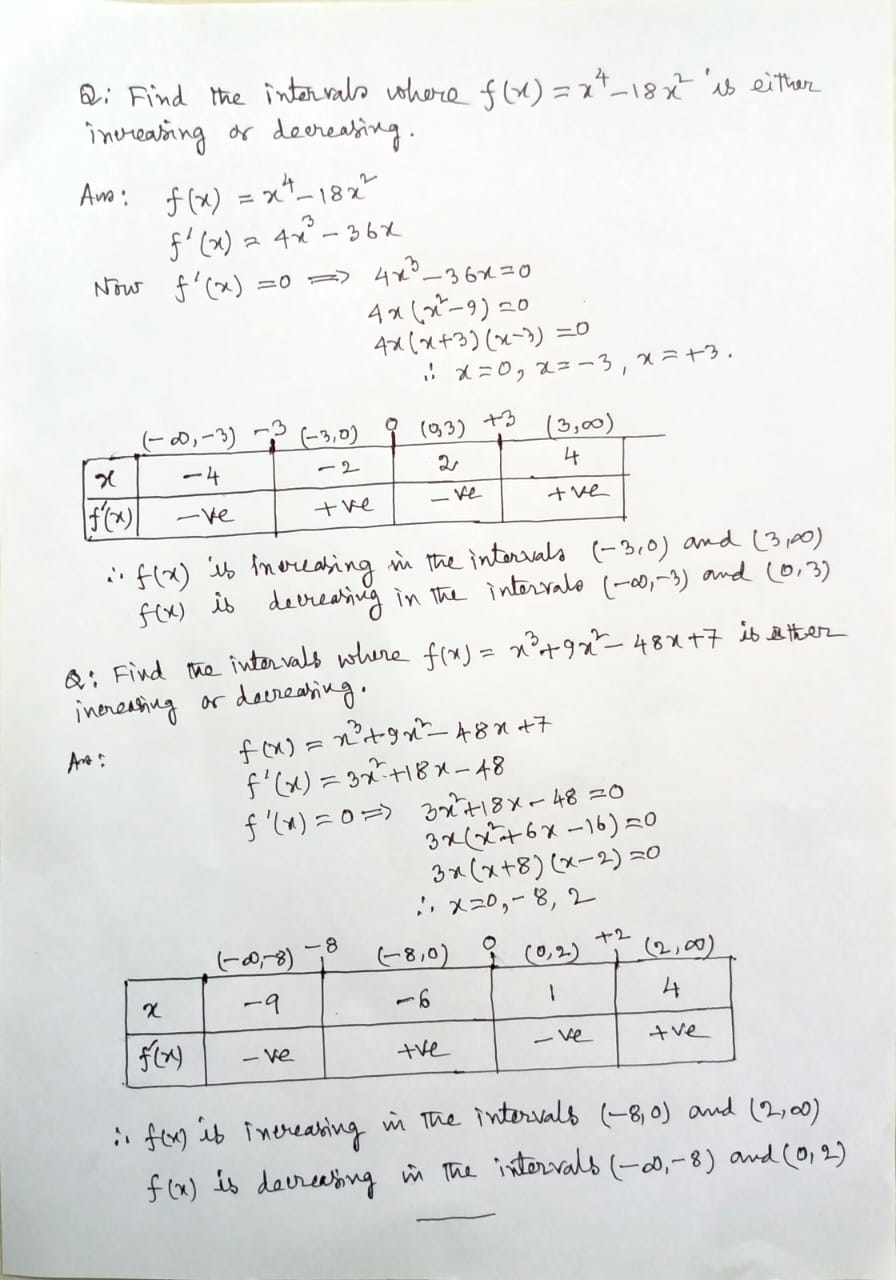 Q: Find the intervals where f(x) = x⁴ – 18x² is either
increasing or decreasing.
Ans: f(x) = x⁴ – 18x²
f'(x) = 4x³ – 36x
Now f'(x) = 0 ⟹ 4x³ – 36x = 0
4x(x² – 9) = 0
4x(x+3)(x–3) = 0
∴ x = 0, x = –3, x = +3.
(–∞, –3) –3 (–3,0) 0 (0,3) +3 (3,∞)
x –4 –2 2 4
f'(x) –ve +ve –ve +ve
∴ f(x) is increasing in the intervals (–3,0) and (3,∞)
f(x) is decreasing in the intervals (–∞,–3) and (0,3)
Q: Find the intervals where f(x) = x³+9x² – 48x+7 is either
increasing or decreasing.
Ans: f(x) = x³+9x² – 48x+7
f'(x) = 3x²+18x – 48
f'(x) = 0 ⟹ 3x²+18x – 48 = 0
3x(x²+6x – 16) = 0
3x(x+8)(x–2) = 0
∴ x = 0, –8, 2
(–∞,–8) –8 (–8,0) 0 (0,2) +2 (2,∞)
x –9 –6 1 4
f'(x) –ve +ve –ve +ve
∴ f(x) is increasing in the intervals (–8,0) and (2,∞)
f(x) is decreasing in the intervals (–∞,–8) and (0,2)